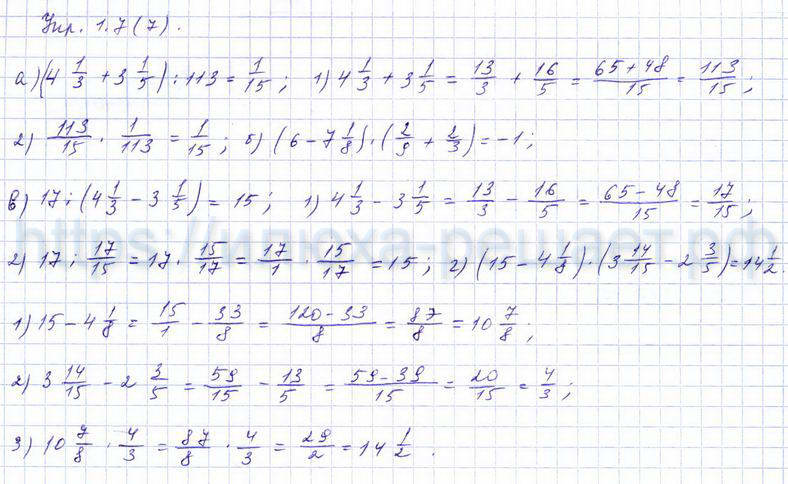 Упр. 1.7(7).
а) (4 1/3 + 3 1/5) : 113 = 1/15; 1) 4 1/3 + 3 1/5 = 13/3 + 16/5 = (65+48)/15 = 113/15;
2) 113/15 · 1/113 = 1/15; б) (6 - 7 1/8) · (2/9 + 2/3) = -1;
в) 17 : (4 1/3 - 3 1/5) = 15; 1) 4 1/3 - 3 1/5 = 13/3 - 16/5 = (65-48)/15 = 17/15;
https://илюха-решает.рф
2) 17 : 17/15 = 17 · 15/17 = 17/1 · 15/17 = 15; г) (15 - 4 1/8) · (3 14/15 - 2 3/5) = 14 1/2.
1) 15 - 4 1/8 = 15/1 - 33/8 = (120-33)/8 = 87/8 = 10 7/8;
2) 3 14/15 - 2 3/5 = 59/15 - 13/5 = (59-39)/15 = 20/15 = 4/3;
3) 10 7/8 · 4/3 = 87/8 · 4/3 = 29/2 = 14 1/2.